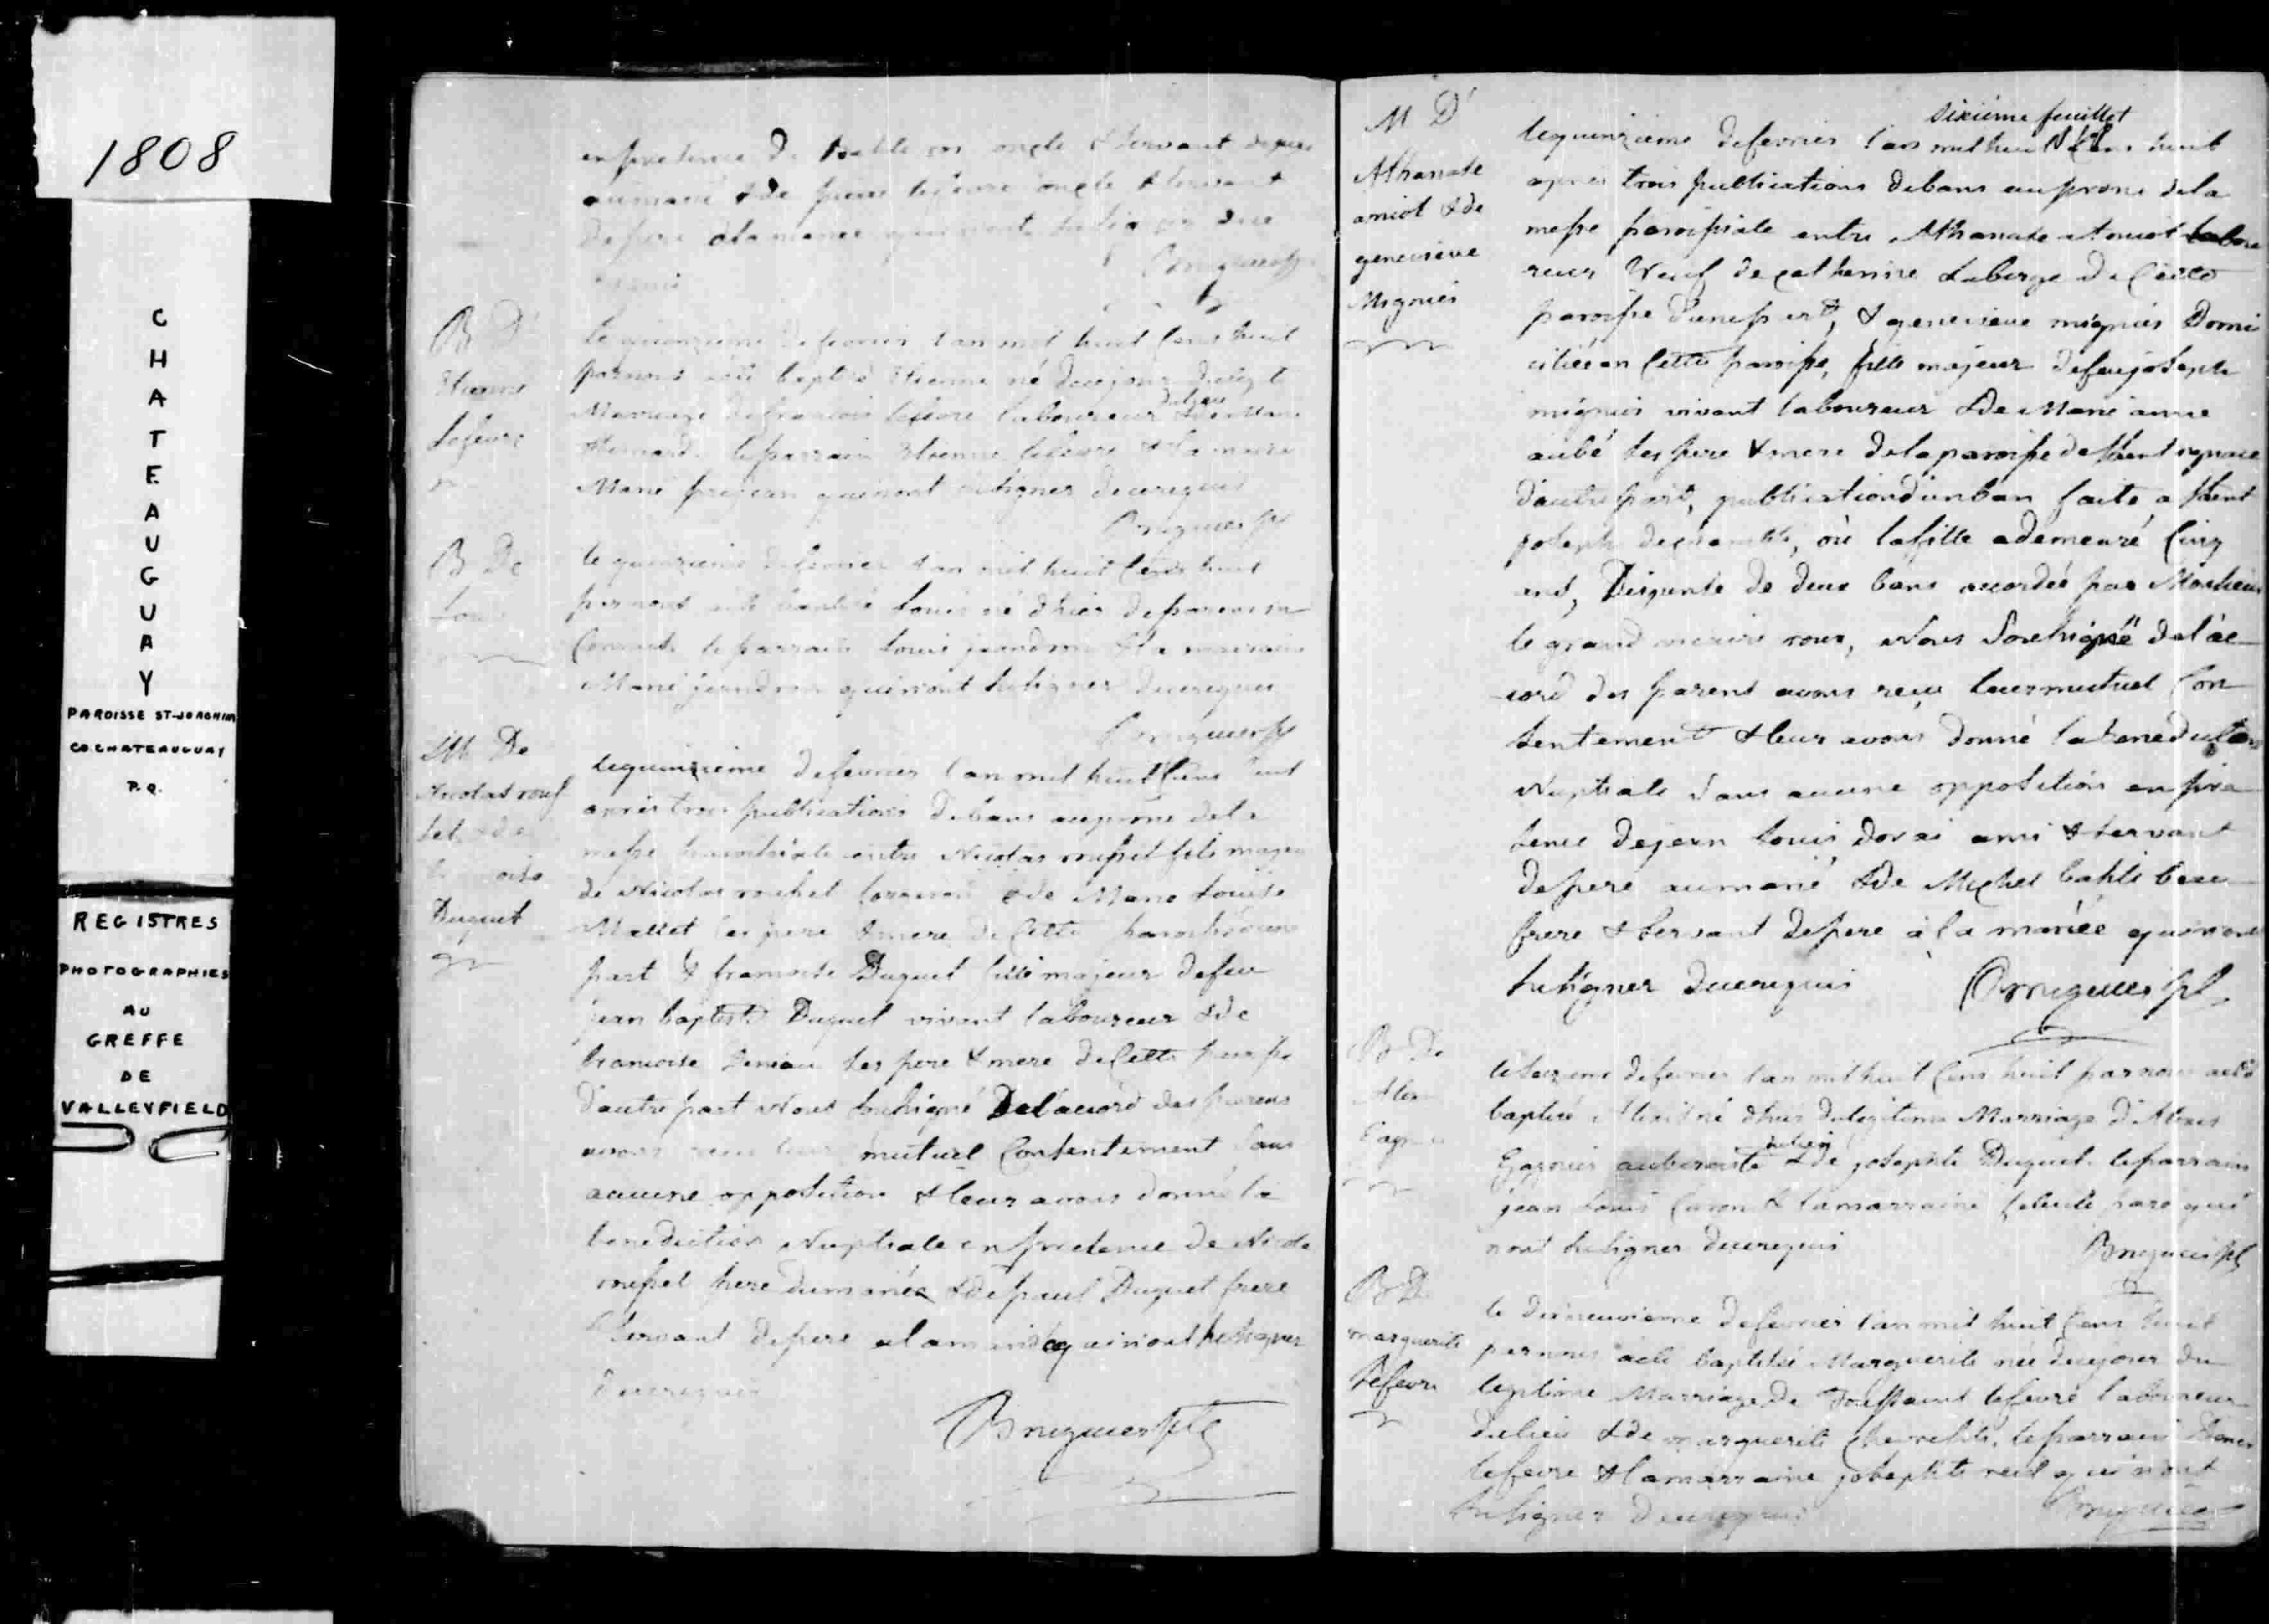 1808
C
H
A
T
E
A
U
G
U
A
Y
PAROISSE ST-JOACHIM
CO. CHATEAUGUAY
P.Q.
REGISTRES
PHOTOGRAPHIES
AU
GREFFE
DE
VALLEYFIELD
en presence de oncle & servant de pere
au marié & de pierre lefevre oncle & servant
de pere a la mariee qui n'ont su signer de ce
requis
B D'
Etienne
Lefevre
le quinzieme de fevrier l'an mil huit Cens huit
par nous a été baptisé Etienne né de ce jour du legte
Marriage de francois lefevre laboureur du lieu & de Marie
le parrain Etienne lefevre & la maraine
Marie qui n'ont su signer de ce requis
Bruguier ptre
B De
Louis
le quinzieme de fevrier l'an mil huit Cens huit
par nous a été baptisé Louis né d'hier de parens in
Connus le parrain Louis gendron & la marraine
Marie gendron qui n'ont su signer de ce requis
Bruguier ptr
M De
Nicolas rous
sel & de
Duquet
le quinzieme de fevrier l'an mil huit Cens huit
après trois publications de bans au prone de la
messe paroissiale entre Nicolas roussel fils majeur
de Nicolas roussel & de Marie Louise
Mallet ses pere & mere de Cette paroisse d'une
part & francoise Duquet fille majeur de feu
jean baptiste Duquet vivant laboureur & de
francoise ses pere & mere de Cette paroisse
d'autre part Nous soussigné De l'accord des parens
avons recu leur mutuel Consentement sans
aucune opposition & leur avons donné la
benediction Nuptiale en presence de Nicolas
roussel pere du marié & de paul Duquet frere
& servant de pere a la mariée qui n'ont su signer
de ce requis
Bruguier ptre
sixième feuillet
M D'
Athanase
amiot & de
genevieve
Migniés
le quinzieme de fevrier l'an mil huit Cens huit
après trois publications de bans au prone de la
messe paroissiale entre Athanase Amiot labou
reur Veuf de catherine Laberge de Cette
paroisse d'une part, & genevieve migniés Domi
ciliée en Cette paroisse, fille majeur de feu joseph
migniés vivant laboureur & de Marie anne
aubé ses pere & mere de la paroisse de saint ignace
d'autre part, publication d'un ban faite a saint
joseph, où la fille a demeuré Cinq
ans, Dispense de deux bans accordée par Monsieur
le grand vicaire roux, Nous Soussigné de l'ac
cord des parens avons reçu leur mutuel Con
sentement & leur avons donné la benediction
Nuptiale sans aucune opposition en pre
sence de jean Louis dorai ami & servant
de pere au marié & de Michel beau
frere & servant de pere à la mariée qui n'ont
su signer de ce requis Bruguier ptr
B De
Alexis
Gagnier
le seizieme de fevrier l'an mil huit Cens huit par nous a été
baptisé Alexis né d'hier du legitime Marriage d'Alexis
Gagnier aubergiste du lieu & de josephte Duquet le parrain
jean Louis Caron & la marraine paré qui
n'ont su signer de ce requis Bruguier ptr
B De
marguerite
Lefevre
le dixneuvieme de fevrier l'an mil huit Cens huit
par nous a été baptisée Marguerite née de ce jour du
legitime Marriage de Toussaint lefevre laboureur
du lieu & de marguerite, le parrain
lefevre & la marraine josephte qui n'ont
su signer de ce requis Bruguier